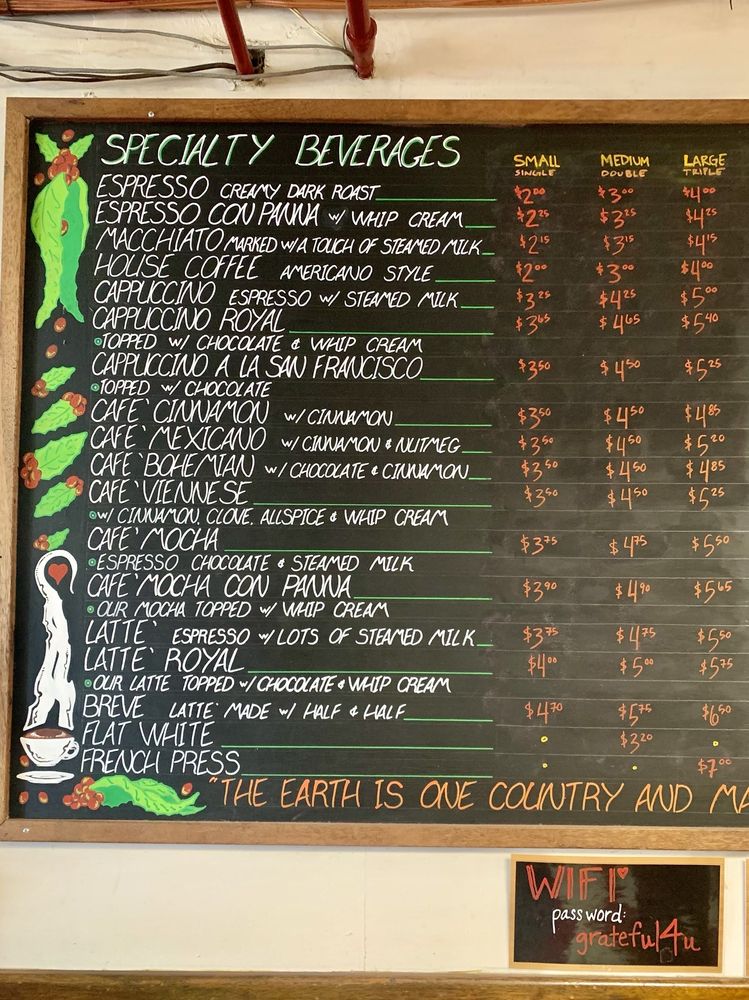 SPECIALTY BEVERAGES SMALL MEDIUM LARGE
SINGLE DOUBLE TRIPLE
ESPRESSO CREAMY DARK ROAST $2.00 $3.00 $4.00
ESPRESSO CON PANNA W/ WHIP CREAM $2.25 $3.25 $4.25
MACCHIATO MARKED W/A TOUCH OF STEAMED MILK $2.15 $3.15 $4.15
HOUSE COFFEE AMERICANO STYLE $2.00 $3.00 $4.00
CAPPUCCINO ESPRESSO W/ STEAMED MILK $3.25 $4.25 $5.00
CAPPUCCINO ROYAL $3.65 $4.65 $5.40
TOPPED W/ CHOCOLATE & WHIP CREAM
CAPPUCCINO A LA SAN FRANCISCO $3.50 $4.50 $5.25
TOPPED W/ CHOCOLATE
CAFE` CINNAMON W/ CINNAMON $3.50 $4.50 $4.85
CAFE` MEXICANO W/ CINNAMON & NUTMEG $3.50 $4.50 $5.20
CAFE` BOHEMIAN W/ CHOCOLATE & CINNAMON $3.50 $4.50 $4.85
CAFE` VIENNESE $3.50 $4.50 $5.25
W/ CINNAMON, CLOVE, ALLSPICE & WHIP CREAM
CAFE` MOCHA $3.75 $4.75 $5.50
ESPRESSO CHOCOLATE & STEAMED MILK
CAFE` MOCHA CON PANNA $3.90 $4.90 $5.65
OUR MOCHA TOPPED W/ WHIP CREAM
LATTE` ESPRESSO W/ LOTS OF STEAMED MILK $3.75 $4.75 $5.50
LATTE` ROYAL $4.00 $5.00 $5.75
OUR LATTE TOPPED W/ CHOCOLATE & WHIP CREAM
BREVE LATTE` MADE W/ HALF & HALF $4.70 $5.75 $6.50
FLAT WHITE $3.20
FRENCH PRESS $7.00
"THE EARTH IS ONE COUNTRY AND MA
WIFI
password:
grateful4u